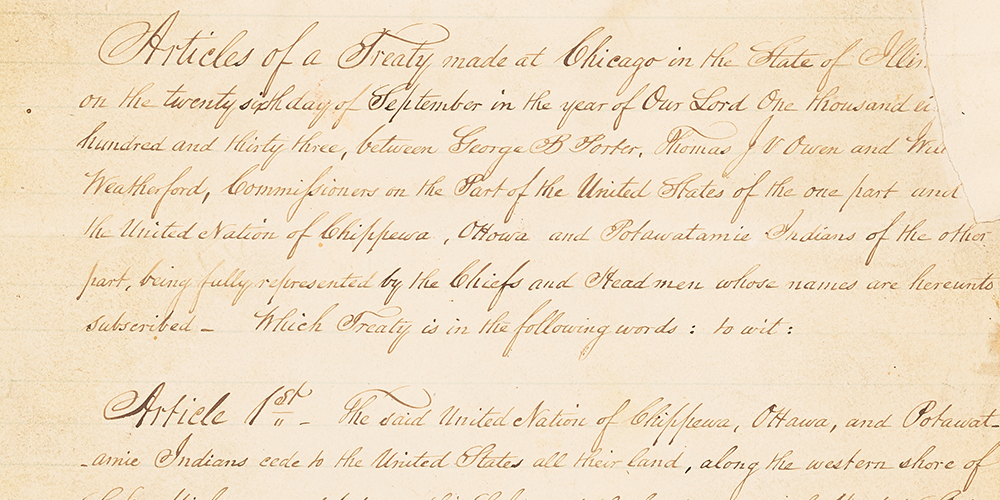 Articles of a Treaty made at Chicago in the State of Illin
on the twenty sixth day of September in the year of Our Lord One thousand ei
hundred and thirty three, between George B Porter, Thomas J V Owen and
Weatherford, Commissioners on the Part of the United States of the one part and
the United Nation of Chippewa, Ottowa and Potawatamie Indians of the other
part, being fully represented by the Chiefs and Head men whose names are hereunto
subscribed - Which Treaty is in the following words: to wit:
Article 1st - The said United Nation of Chippewa, Ottawa, and Potawat-
-amie Indians cede to the United States all their land, along the western shore of